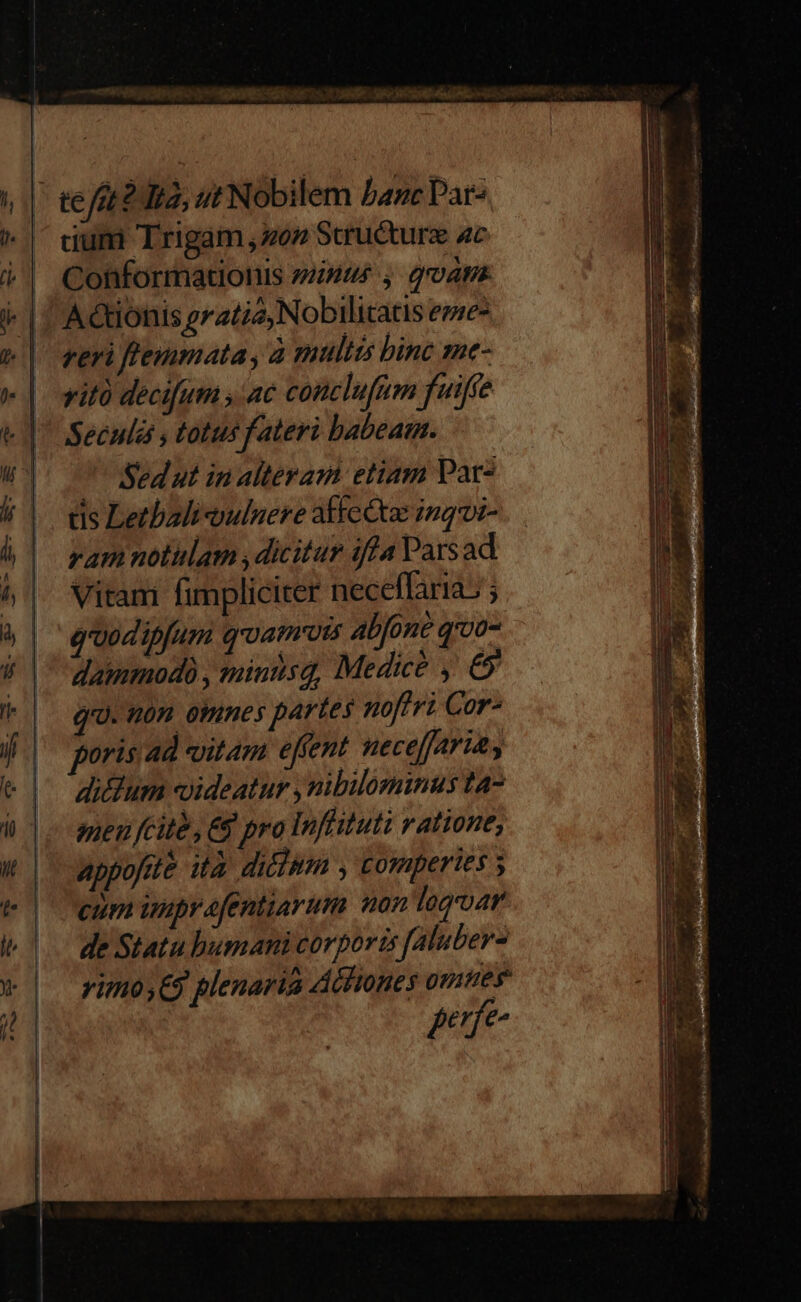 te ſit? Ità, ut Nobilem hanc Par-
tium Trigam, non Structuræ ac
Conformationis minus, qvàm
Actionis gratiâ, Nobilitatis eme-
reri ſtemmata, à multis hinc me-
ritò deciſum, ac concluſum fuiſſe
Seculis, totus fateri habeam.
Sed ut in alteram etiam Par-
tis Lethali vulnere affectæ inqvi-
ram notulam, dicitur iſta Pars ad
Vitam ſimpliciter neceſſaria;
qvod ipſum qvamvis abſonè qvo-
dammodò, minùsq, Medicè, &
qv. non omnes partes noſtri Cor-
poris ad vitam eſſent neceſſariæ,
dictum videatur, nihilominus ta-
men ſcitè, & pro Inſtituti ratione,
appoſitè ità dictum, comperies;
cùm impræſentiarum non loqvar
de Statu humani corporis ſaluber-
rimo, & plenariâ Actiones omnes
perfe-